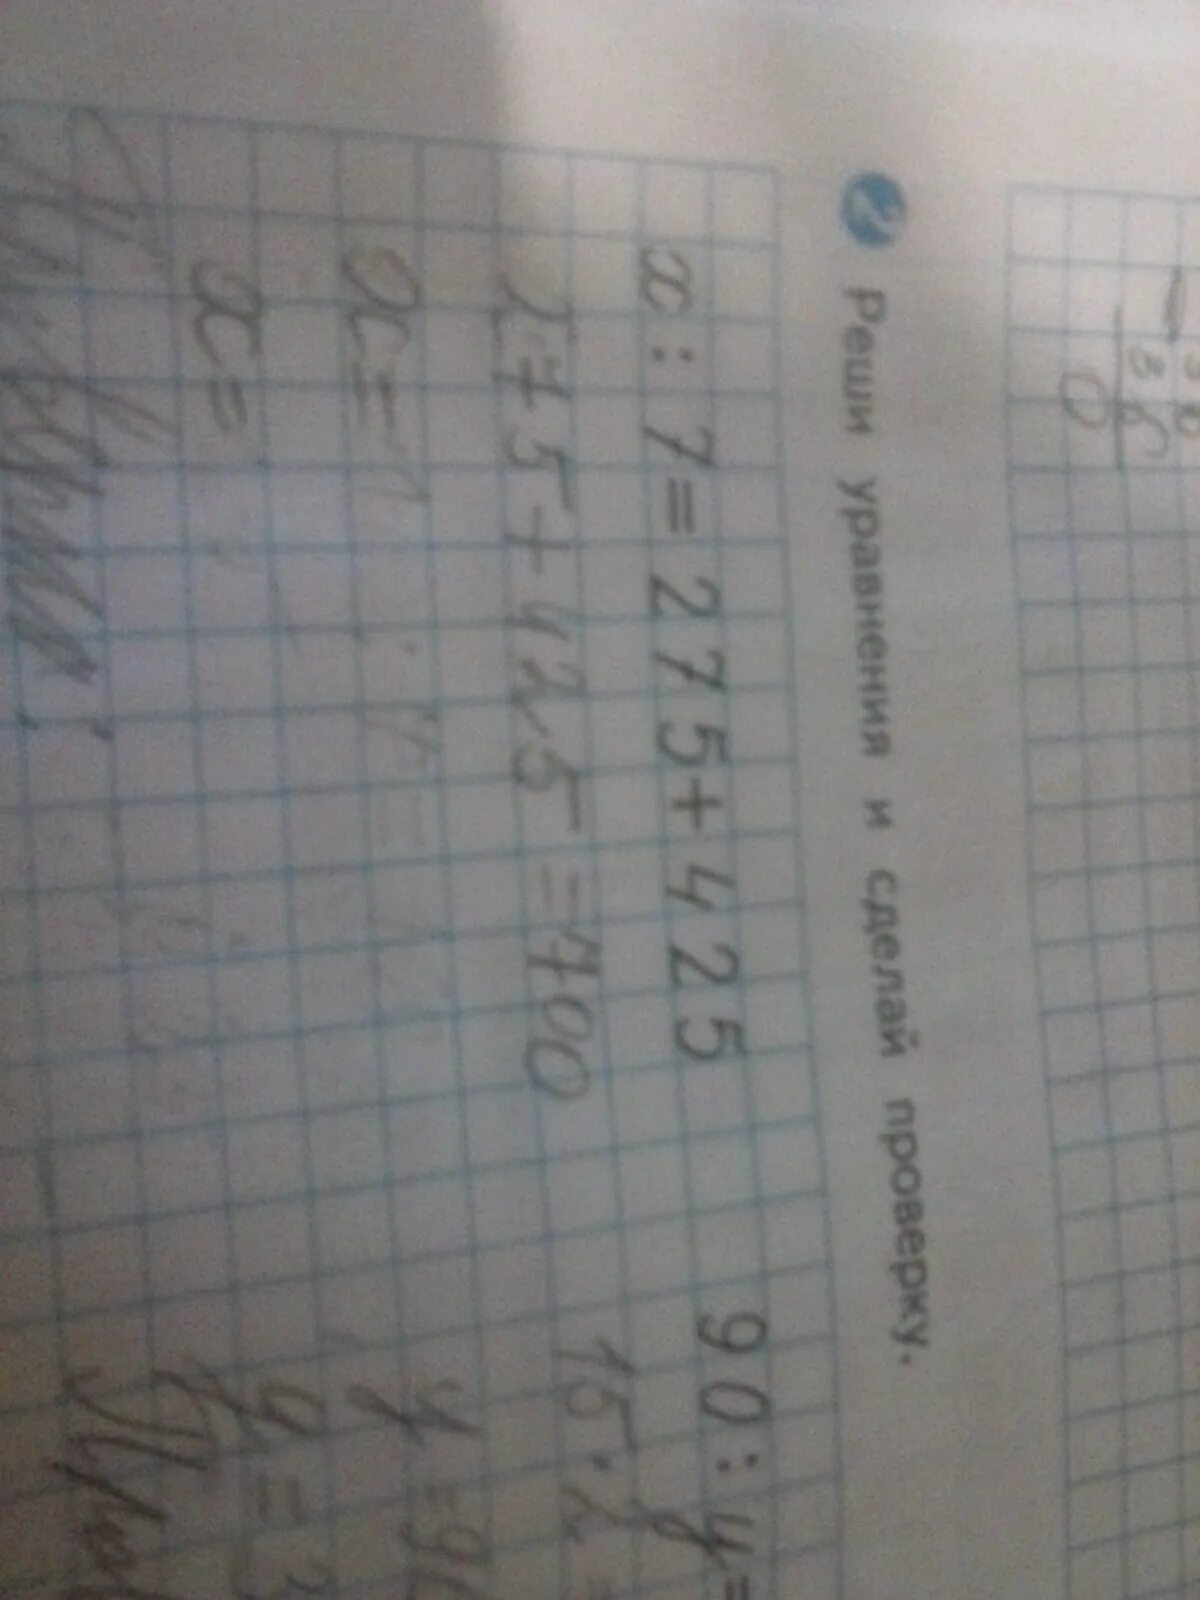 36
36
0
2 Реши уравнения и сделай проверку.
x : 7 = 275 + 425
275 + 425 = 700
x =
x =
90 : y =
15 · 2 =
y = 90
y = 3